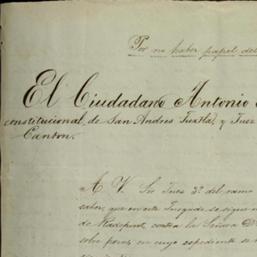 Por no haber papel del
El Ciudadano Antonio
constitucional, de San Andres Tuxtla, y Juez
Canton.
A V. Sor Juez 3º del ramo
sabe, que en este Juzgado se sigue
de contra la Señora D
sobre pesos, en cuyo espediente se